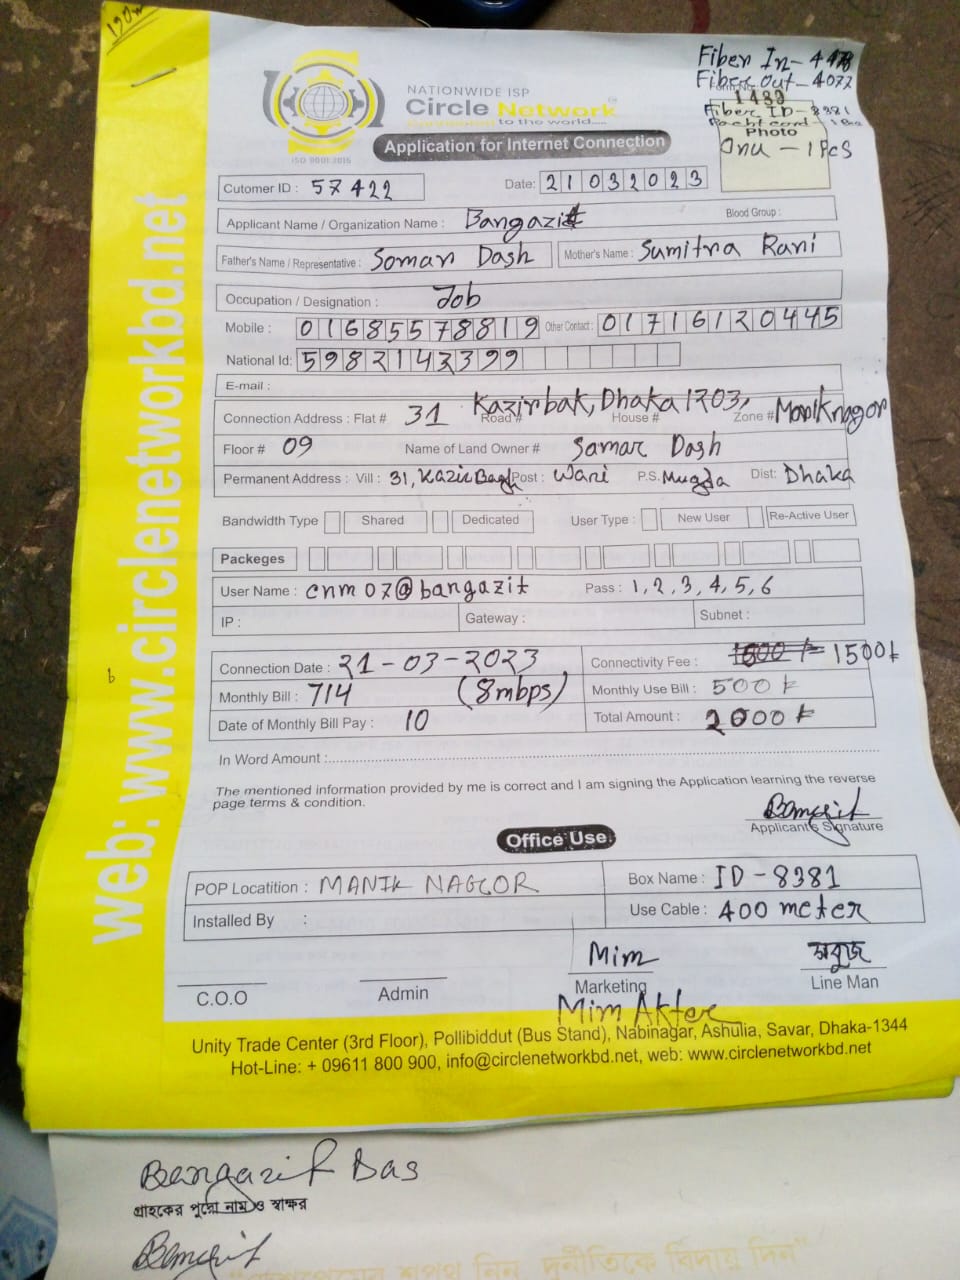 190w
Fiber In - 4478
Fiber out - 4077
1489
Fiber ID - 8381
Photo
Onu - 1 Pcs
NATIONWIDE ISP
Circle Network
to the world.....
ISO 9001:2015
Application for Internet Connection
Cutomer ID : 57422 Date: 21032023
Applicant Name / Organization Name : Bangazit Blood Group :
Father's Name / Representative : Somar Dash Mother's Name : Sumitra Rani
Occupation / Designation : Job
Mobile : 01685578819 Other Contact : 01716120445
National Id: 5982143399
E-mail :
Connection Address : Flat # 31 Road # House # Zone # Kazirbak, Dhaka 1203, Maniknagor
Floor # 09 Name of Land Owner # Samar Dash
Permanent Address : Vill : 31, Kazir Bagh Post : Wari P.S. Mugda Dist: Dhaka
Bandwidth Type Shared Dedicated User Type : New User Re-Active User
Packeges
User Name : cnm07@bangazit Pass : 1,2,3,4,5,6
IP : Gateway : Subnet :
Connection Date : 21-03-2023 Connectivity Fee : 1500 ৳
Monthly Bill : 714 (8mbps) Monthly Use Bill : 500 ৳
Date of Monthly Bill Pay : 10 Total Amount : 2000 ৳
In Word Amount :
The mentioned information provided by me is correct and I am signing the Application learning the reverse
page terms & condition.
Applicant's Signature
Office Use
POP Locatition : MANIK NAGGOR Box Name : ID - 8381
Installed By : Use Cable : 400 meter
Mim সবুজ
C.O.O Admin Marketing Line Man
Mim Akter
Unity Trade Center (3rd Floor), Pollibiddut (Bus Stand), Nabinagar, Ashulia, Savar, Dhaka-1344
Hot-Line: + 09611 800 900, info@circlenetworkbd.net, web: www.circlenetworkbd.net
web: www.circlenetworkbd.net
b
Bangazit Das
গ্রাহকের পুরো নাম ও স্বাক্ষর
শপথ নিন, দুর্নীতিকে বিদায় দিন"